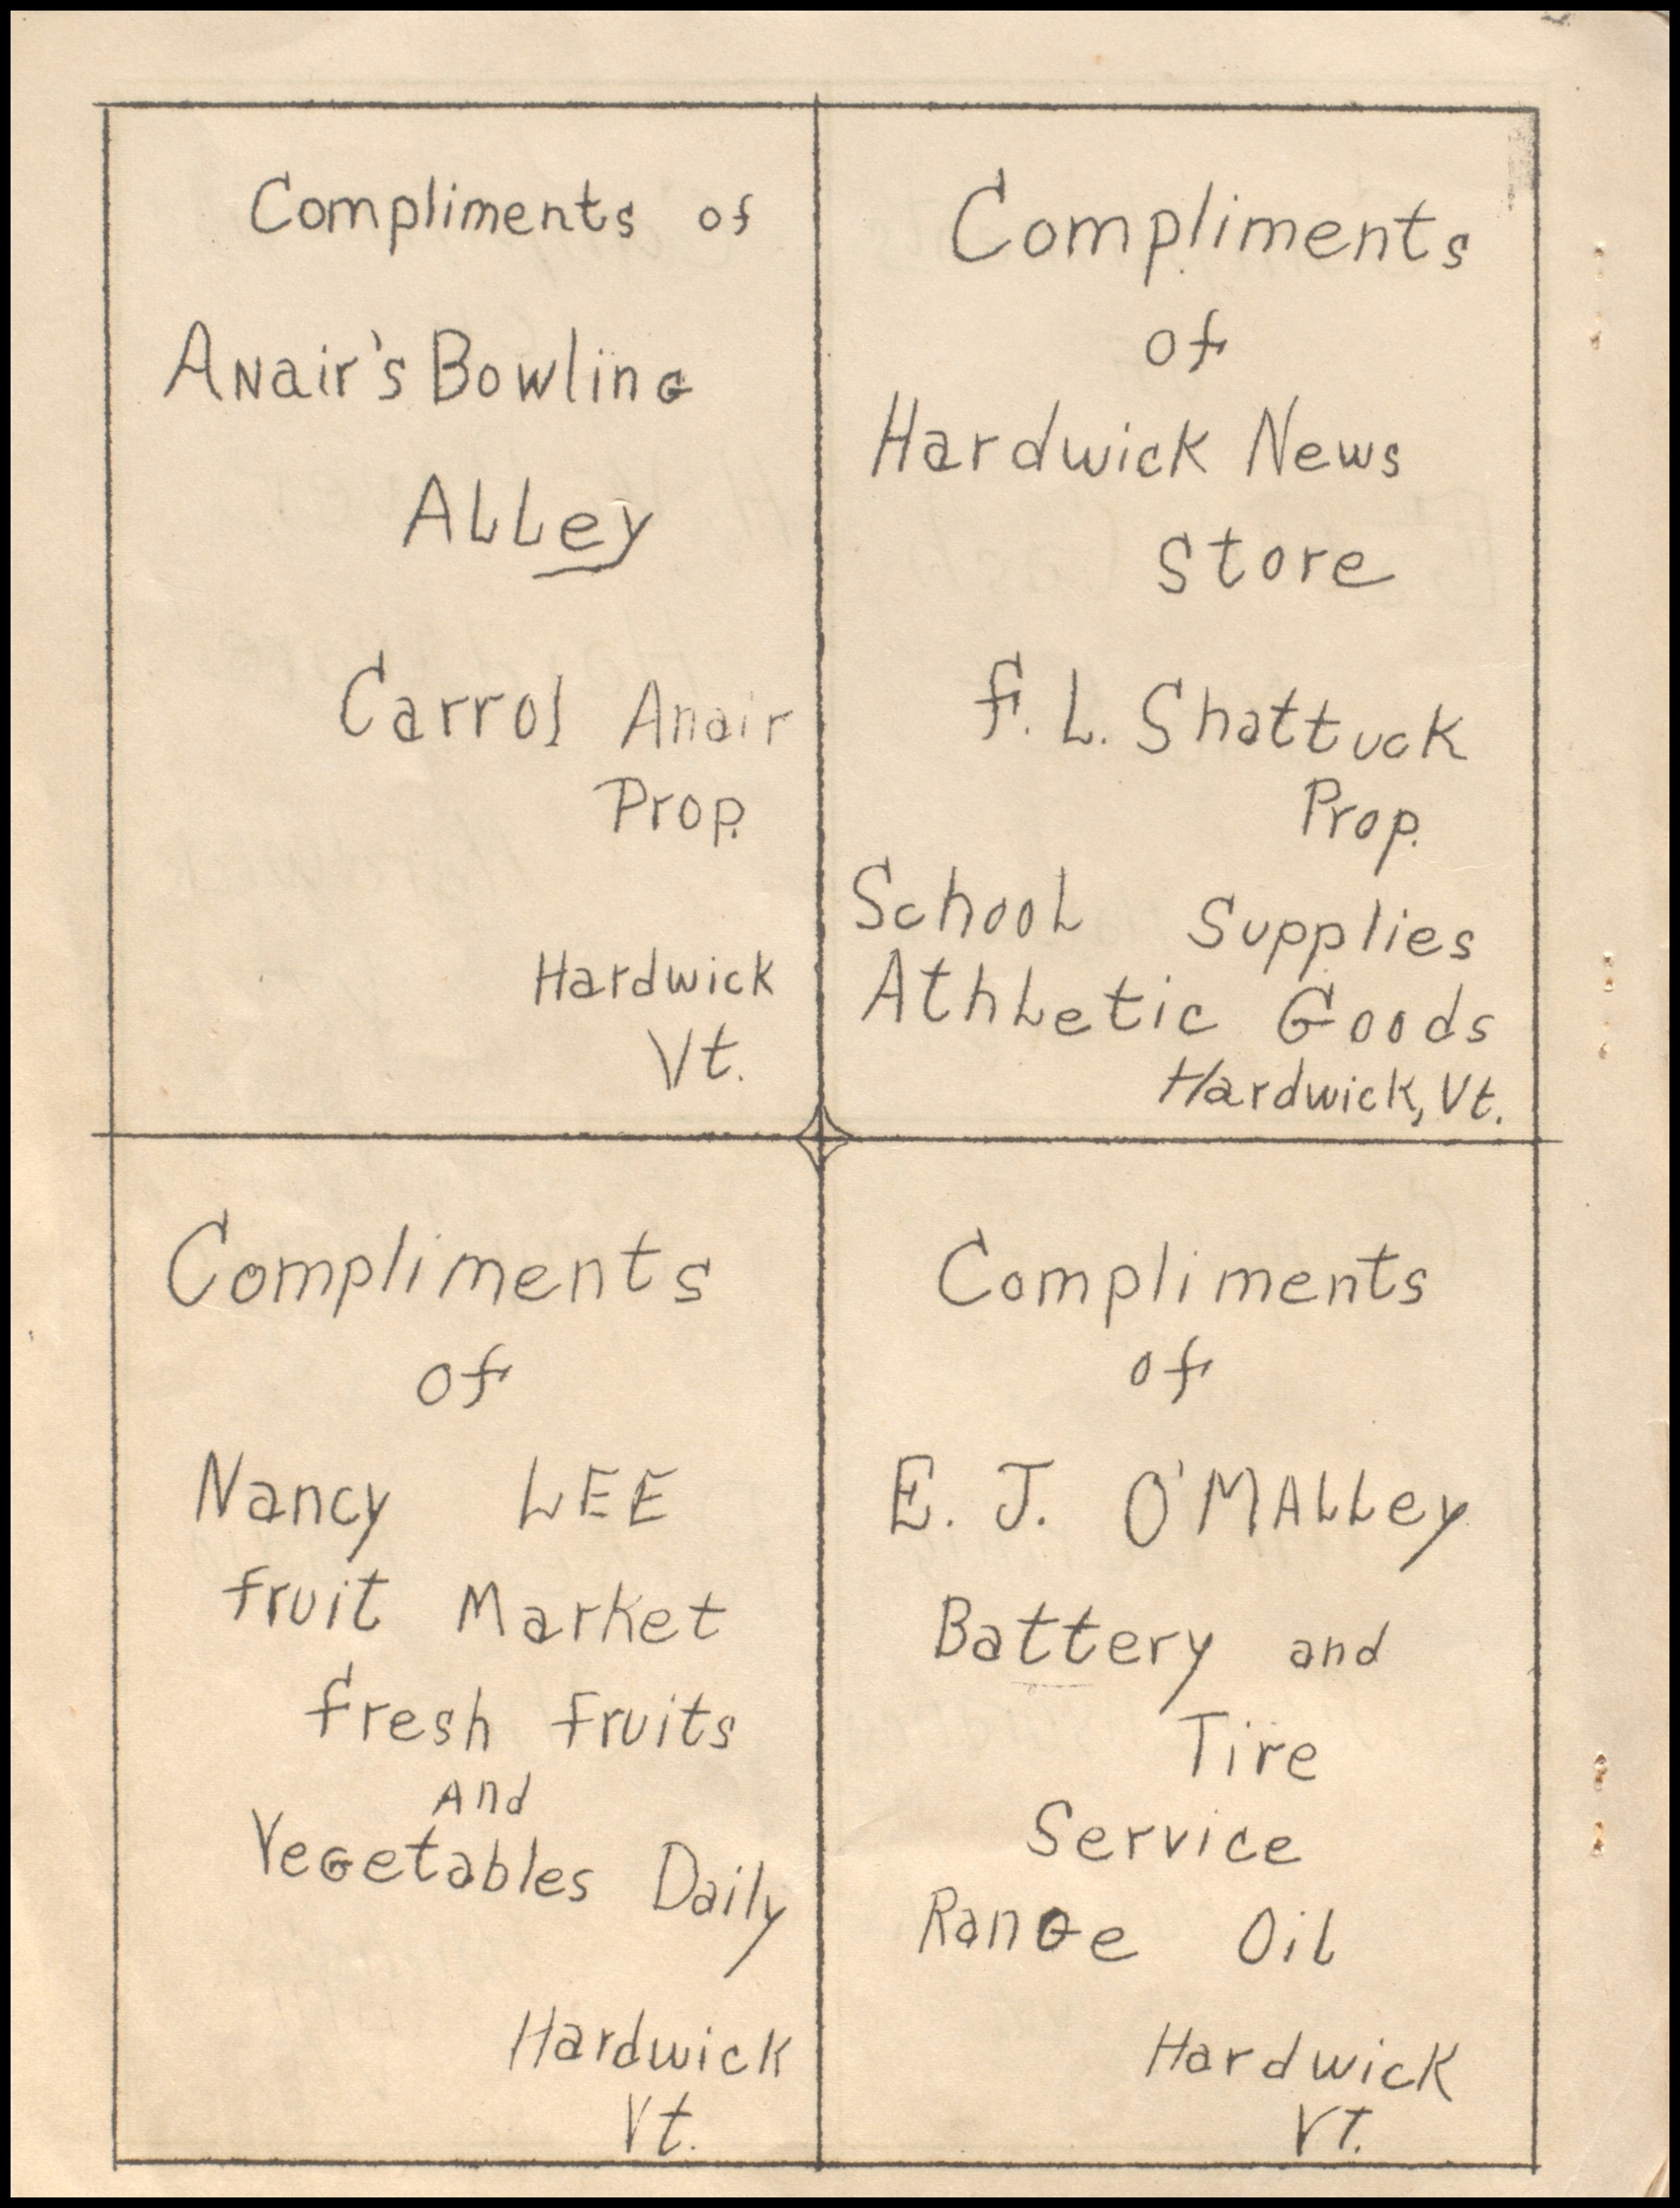 Compliments of
ANair's BowlinG
ALLey
Carrol Anair
Prop.
Hardwick
Vt.
Compliments
of
Hardwick News
Store
F. L. Shattuck
Prop.
SchooL Supplies
AthLetic Goods
Hardwick, Vt.
Compliments
of
Nancy LEE
fruit Market
fresh fruits
And
VeGetables Daily
Hardwick
Vt.
Compliments
of
E. J. O'MALLey
Battery and
Tire
Service
RanGe OiL
Hardwick
VT.